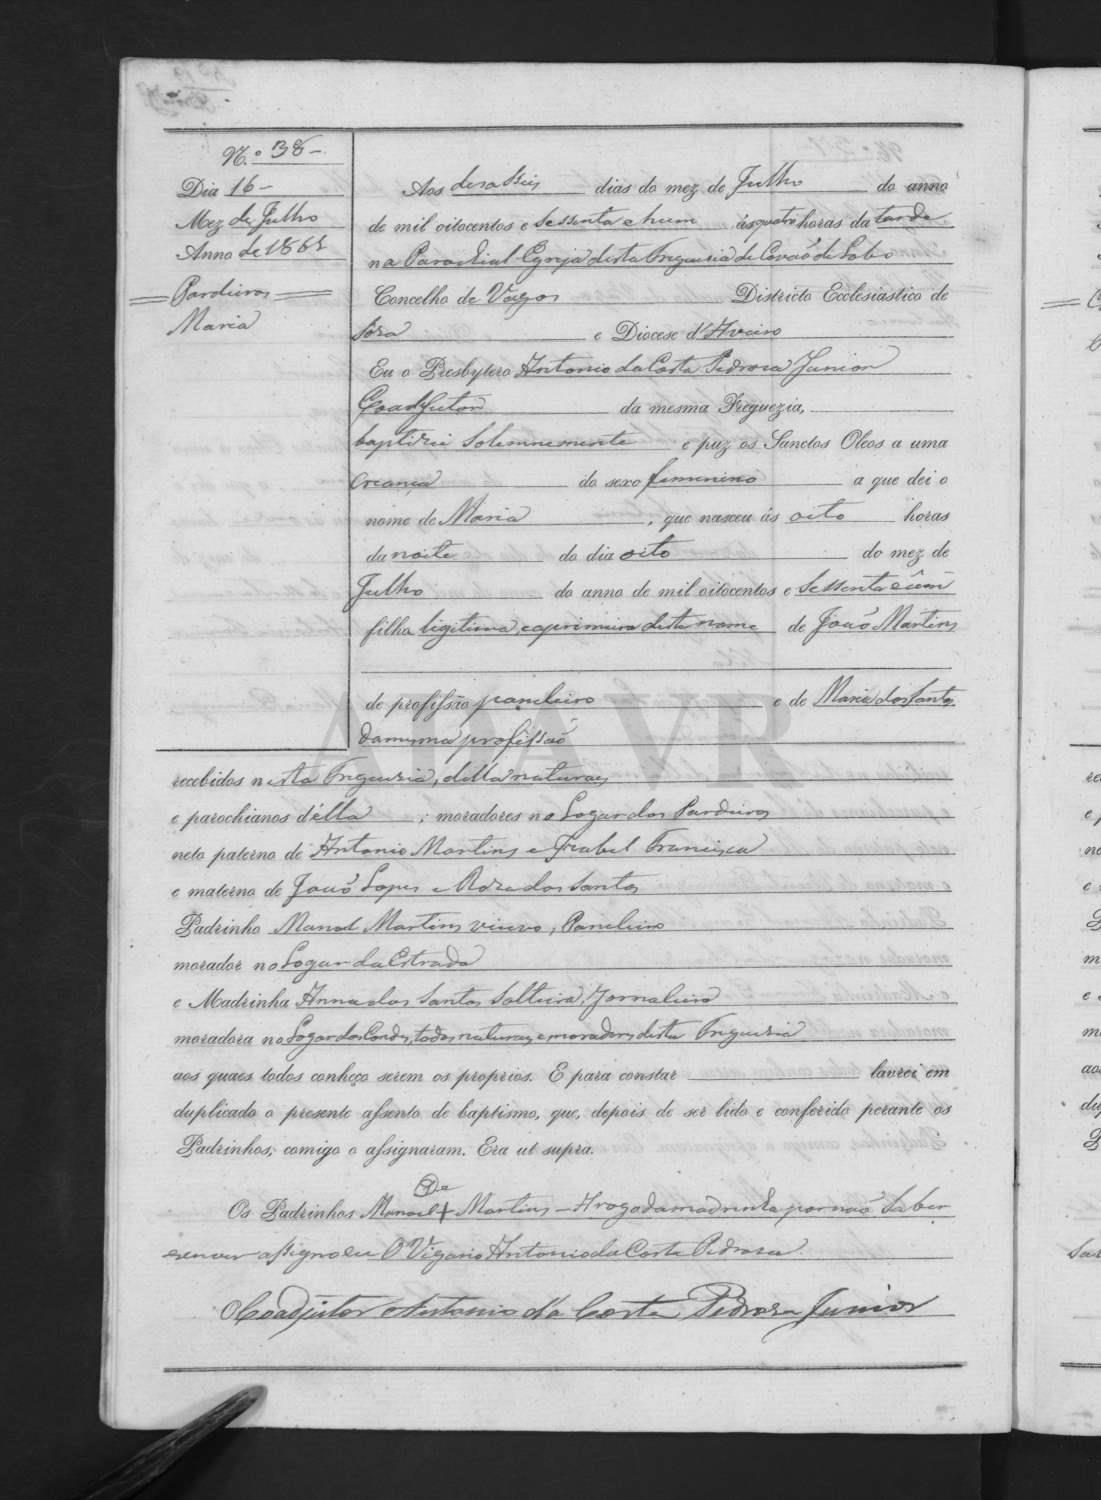 N.º 38-
Dia 16-
Mez de Julho
Anno de 1861
Pardieiros
Maria
Aos desasseis dias do mez de Julho do anno
de mil oitocentos e sessenta e hum ás quatro horas da tarde
na Parochial Egreja desta Freguesia de Covaõ do Lobo
Concelho de Vagos Districto Ecclesiastico de
Sóza e Diocese d'Aveiro
Eu o Presbytero Antonio da Costa Pedrosa Junior
Coadjutor da mesma Freguezia,
baptizei solemnemente e puz os Sanctos Oleos a uma
creança do sexo femenino a que dei o
nome de Maria, que nasceu ás oito horas
da noite do dia oito do mez de
Julho do anno de mil oitocentos e sessenta e úm
filha ligitima, e a primeira deste nome de Joaõ Martins
de profissão paneleiro e de Maria dos Santos
da mesma profissaõ
recebidos nesta Freguesia, della naturaes
e parochianos d'élla; moradores no Logar dos Pardieiros
neta paterna de Antonio Martins e Isabel Francisca
e materna de Joaõ Lopes e Rosa dos Santos
Padrinho Manoel Martins viuvo, Paneleiro
morador no Logar da Estrada
e Madrinha Anna dos Santos Solteira, Jornaleira
moradora no Logar dos, todos naturaes e moradores desta Freguesia
aos quaes todos conheço serem os proprios. E para constar lavrei em
duplicado o presente assento de baptismo, que, depois de ser lido e conferido perante os
Padrinhos, comigo o assignaram. Era ut supra.
De
Os Padrinhos Manoel + Martins - A rogo da madrinha por naõ saber
escrever assigno eu O Vigario Antonio da Costa Pedrosa
O Coadjutor Antonio da Costa Pedrosa Junior
ADAVR